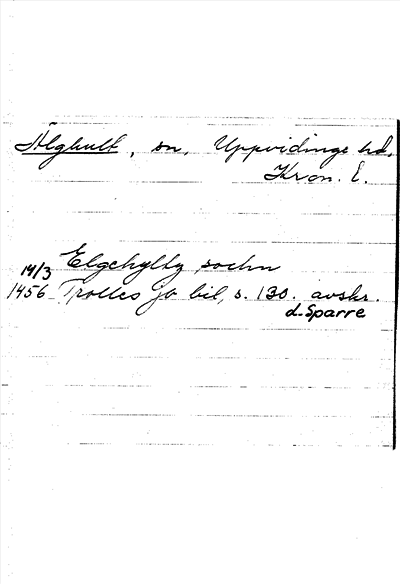 Älghult, sn, Uppvidinge hd,
Kron. l.
Elgehylty sochn
14/3
1456 Trolles jb bil, s. 130. avskr.
d. Sparre